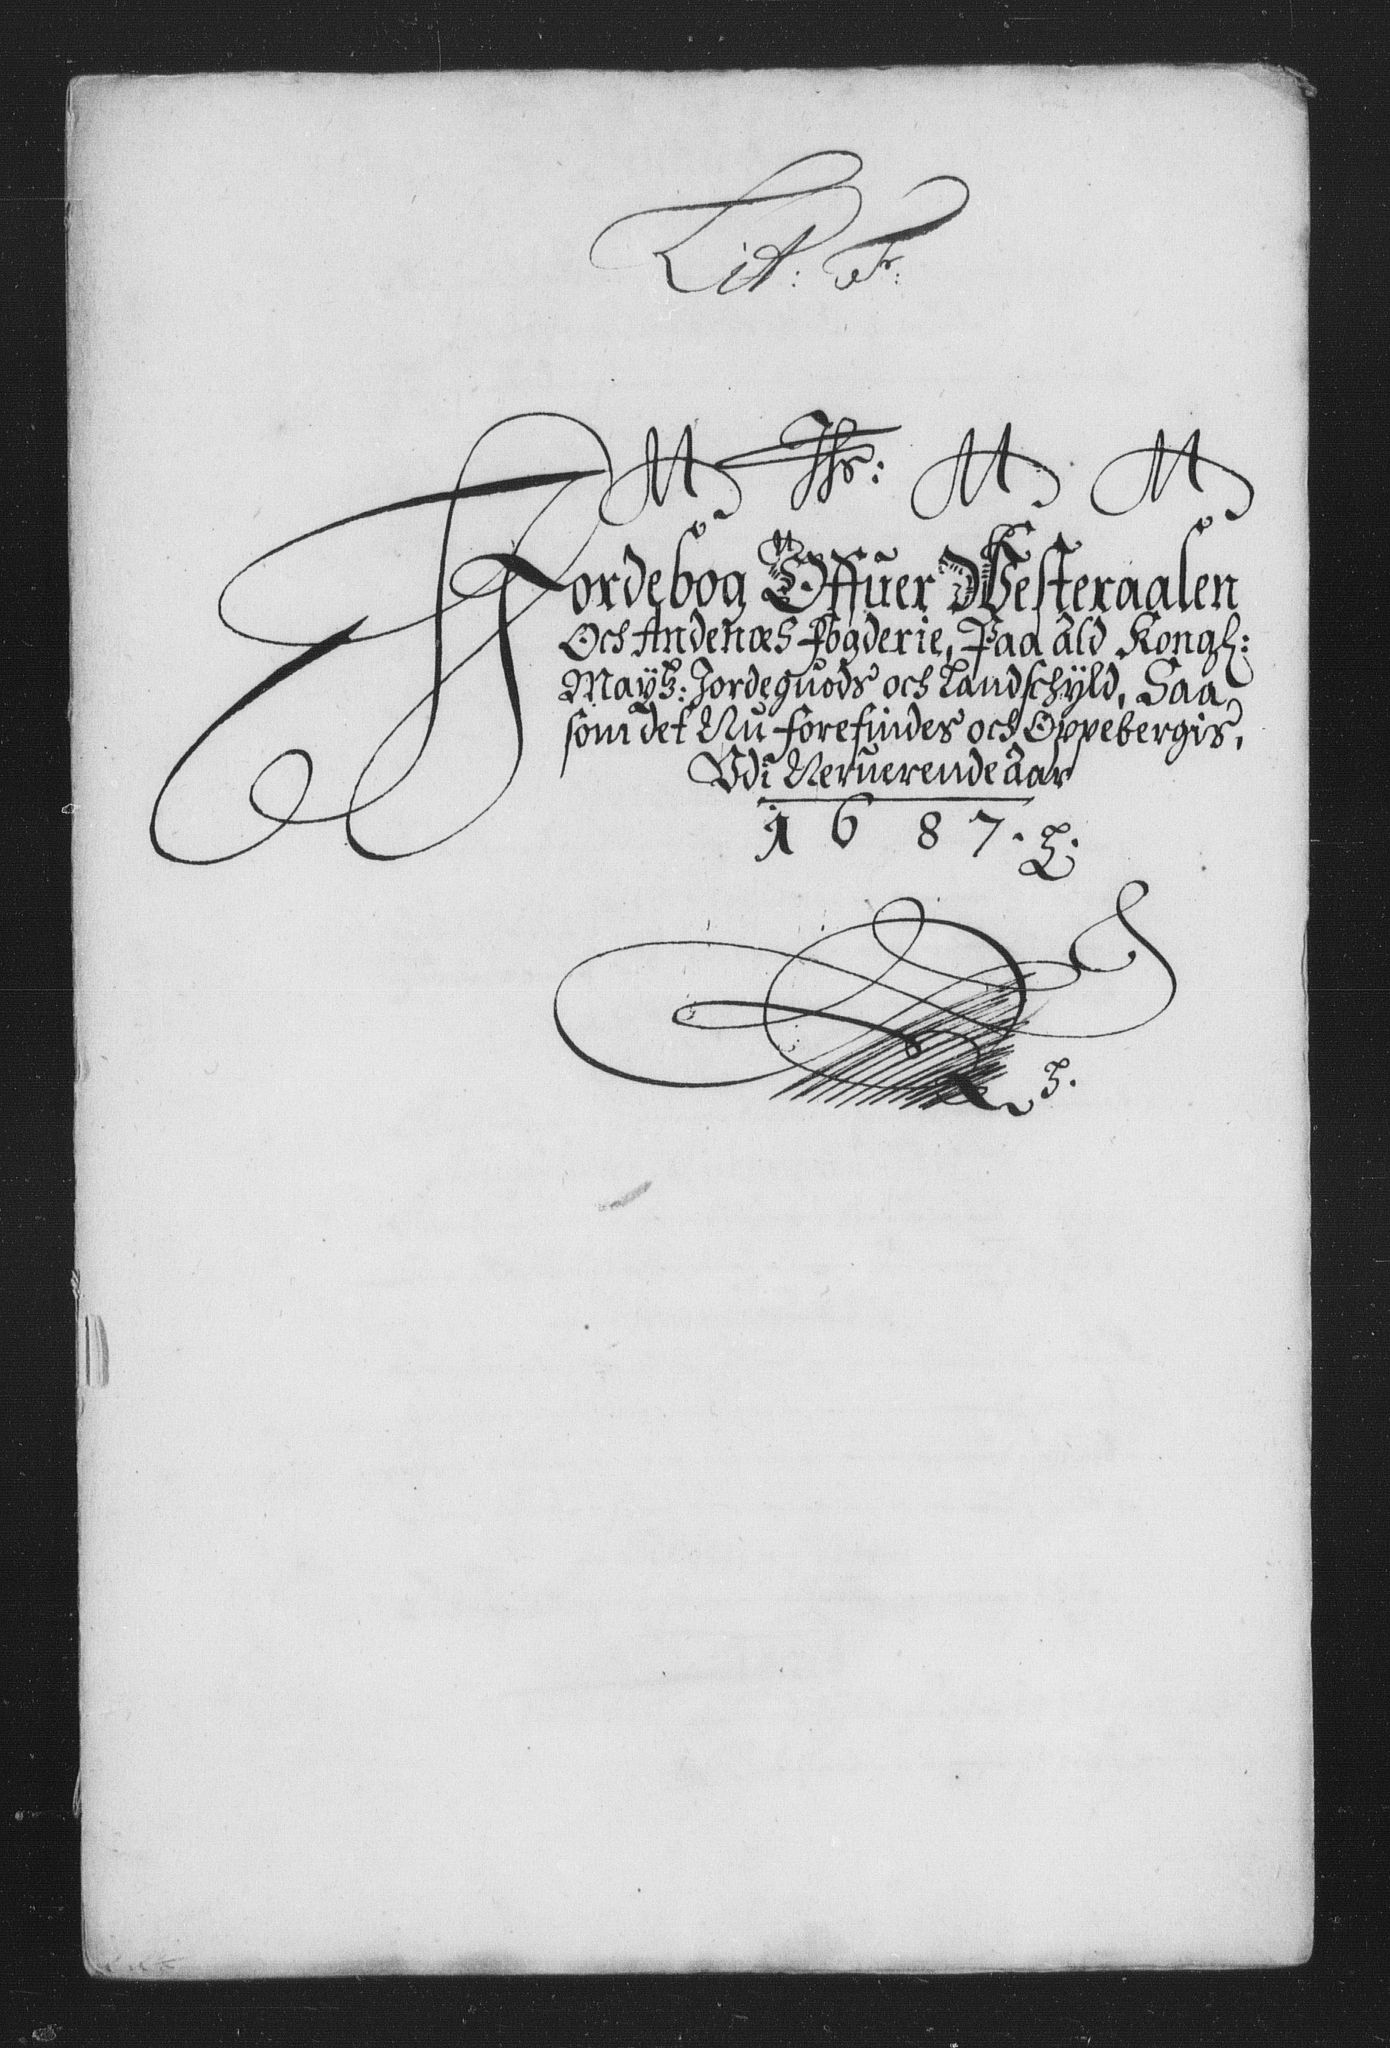 Lit: F:
Ihs:
Jordebog Offuer Westeraalen
Och Andenæs fogderie, Paa ald Kongl:
Mayts: Jordeguods och Landschyld, Saa
som det Nu forefindes och Oppebergis,
Vdi Neruerende Aar
1687.